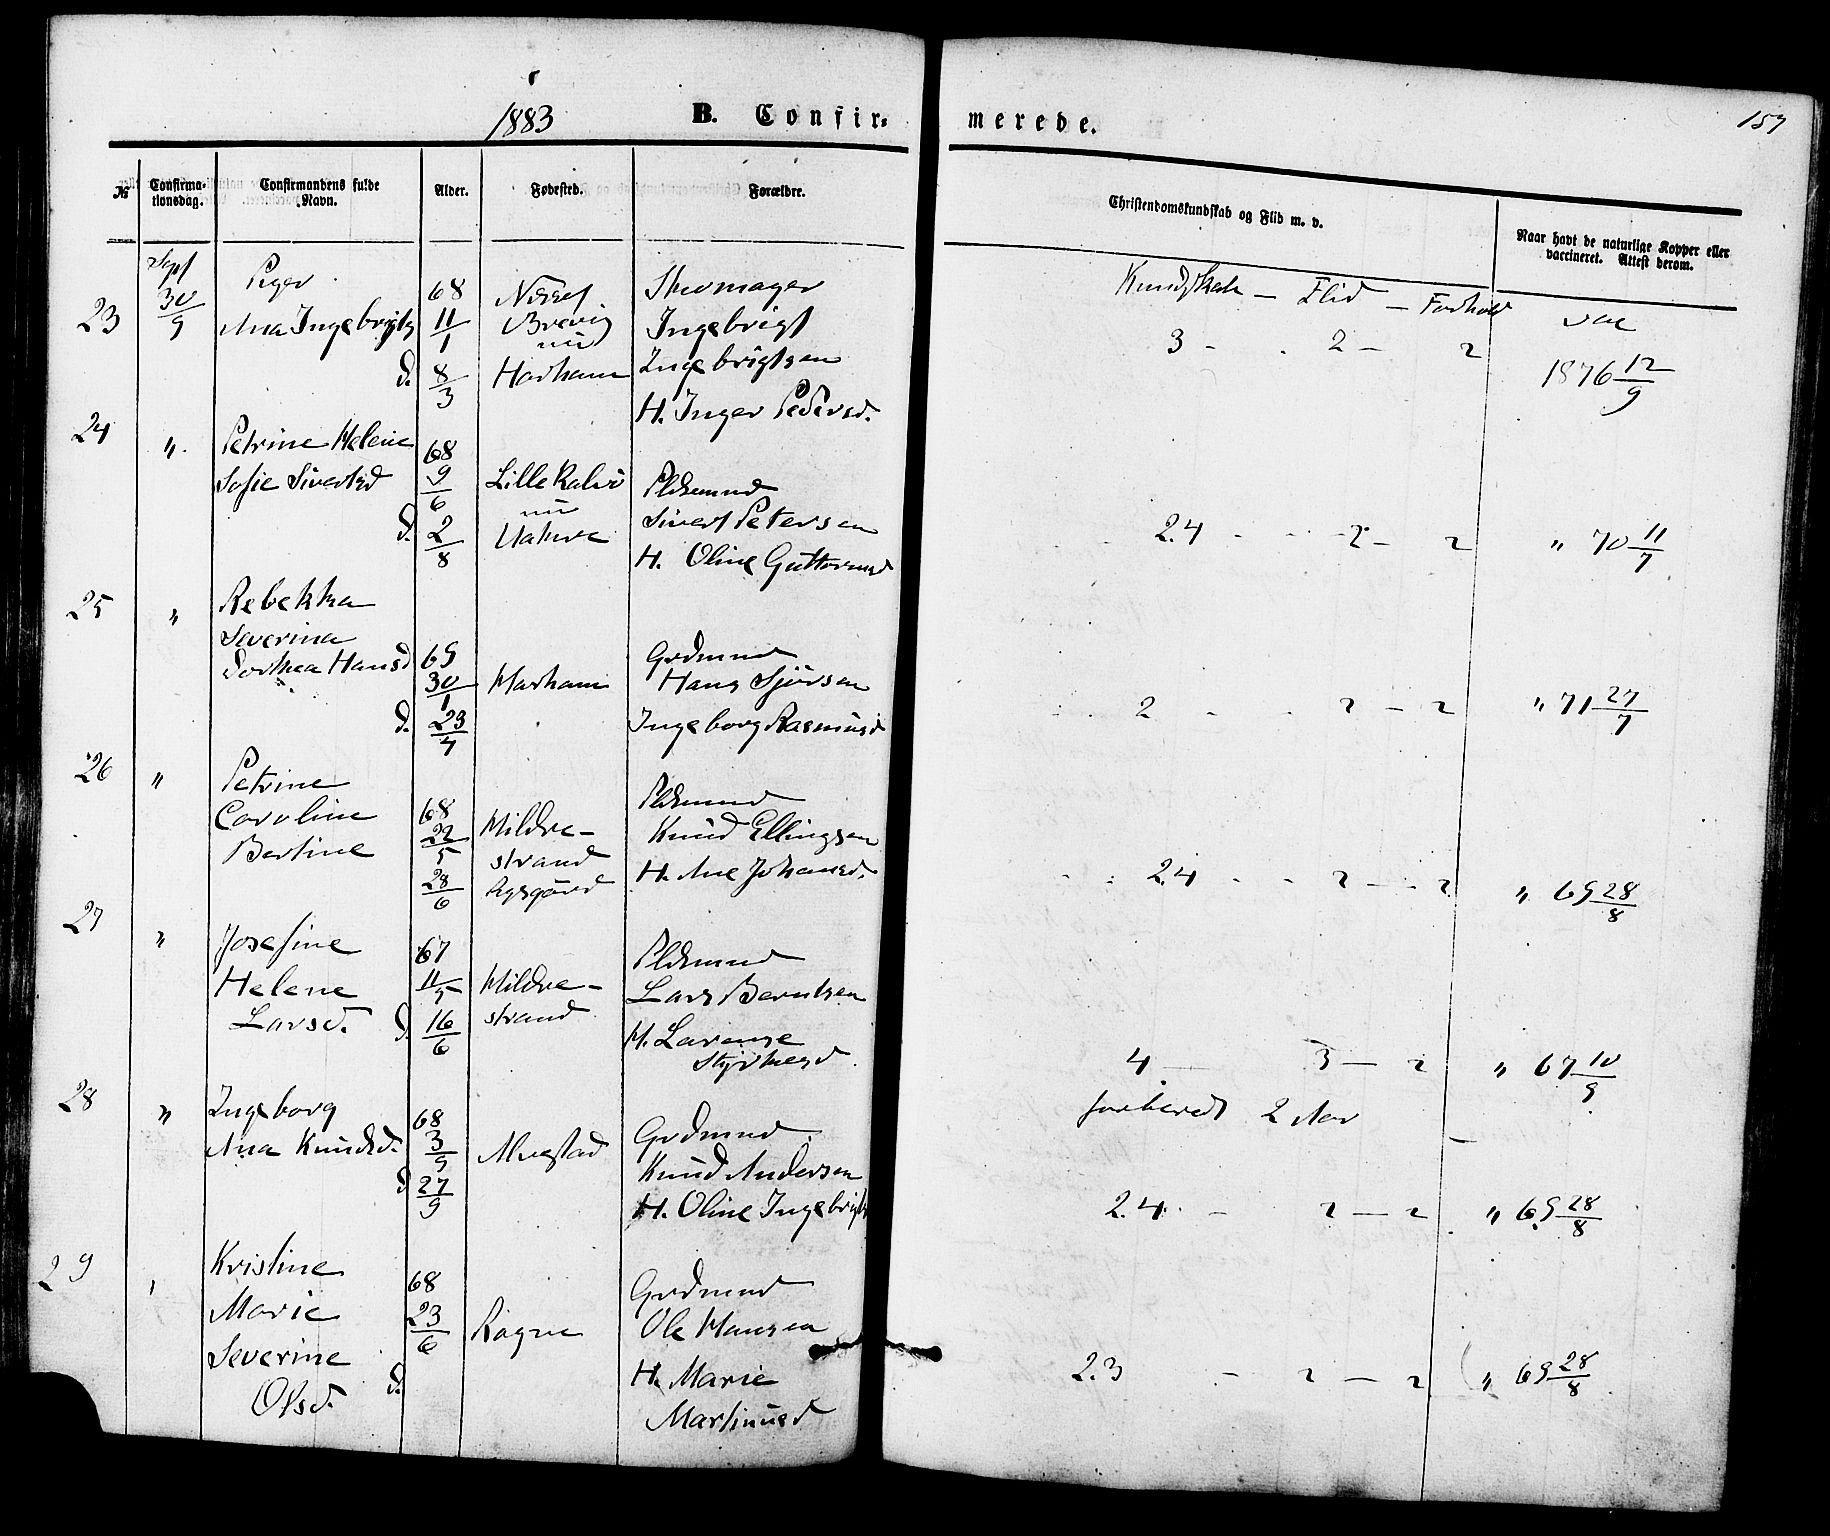 1883 B. Confirmerede. 157
№ Confirmationsdag. Confirmandens fulde Navn. Alder. Fødested. Forældre. Christendomskundskab og Flid m. v. Naar havt de naturlige Kopper eller vaccineret. Attest derom.
Sept Piger Kundskab — Flid — Forhold vac
23 30/9 Ana Ingebrigts 68 11/1 d. 8/3
nu Harham
Skomager
Ingebrigt
Ingebrigtsen
H. Inger Pedersd.
3 - 2 - 2 1876 12/9
24 " Petrine Helene
Sofie Sivertsd 68 9/6 d. 2/8
Lille Kalvø
nu
Pldsmand
Sivert Petersen
H. Oline Guttormsd
2.4 - 2 - 2 " 70 11/7
25 " Rebekka
Severina
Dorthea Hansd 69 30/1 d. 23/4
Harham
Grdmand
Hans Sjørsen
Ingeborg Rasmusd
2 - 2 - 2 " 71 27/7
26 " Petrine
Caroline
Bertine 68 22/5 28/6
Mildre-
strand
Pldsmand
Knud Ellingsen
H. Ane Johansd.
2.4 - 2 - 2 " 69 28/8
27 " Josefine
Helene
Larsd. 67 11/5 d. 16/6
Mildre-
strand
Pldsmand
Lars Berntsen
H. Larense
4 - 3 - 2 " 67 10/9
forberedt 2 Aar
28 " Ingeborg
Ana Knudsd. 68 3/9 d 27/9
Alvestad
Grdmand
Knud Andersen
H. Oline Ingebrigts
2.4 - 2 - 2 " 69 28/8
29 " Kristine
Marie
Severine
Olsd. 68 23/6 d.
Rogne
Grdmand
Ole Hansen
H. Marie
Martinusd
2.3 - 2 - 2 " 69 28/8